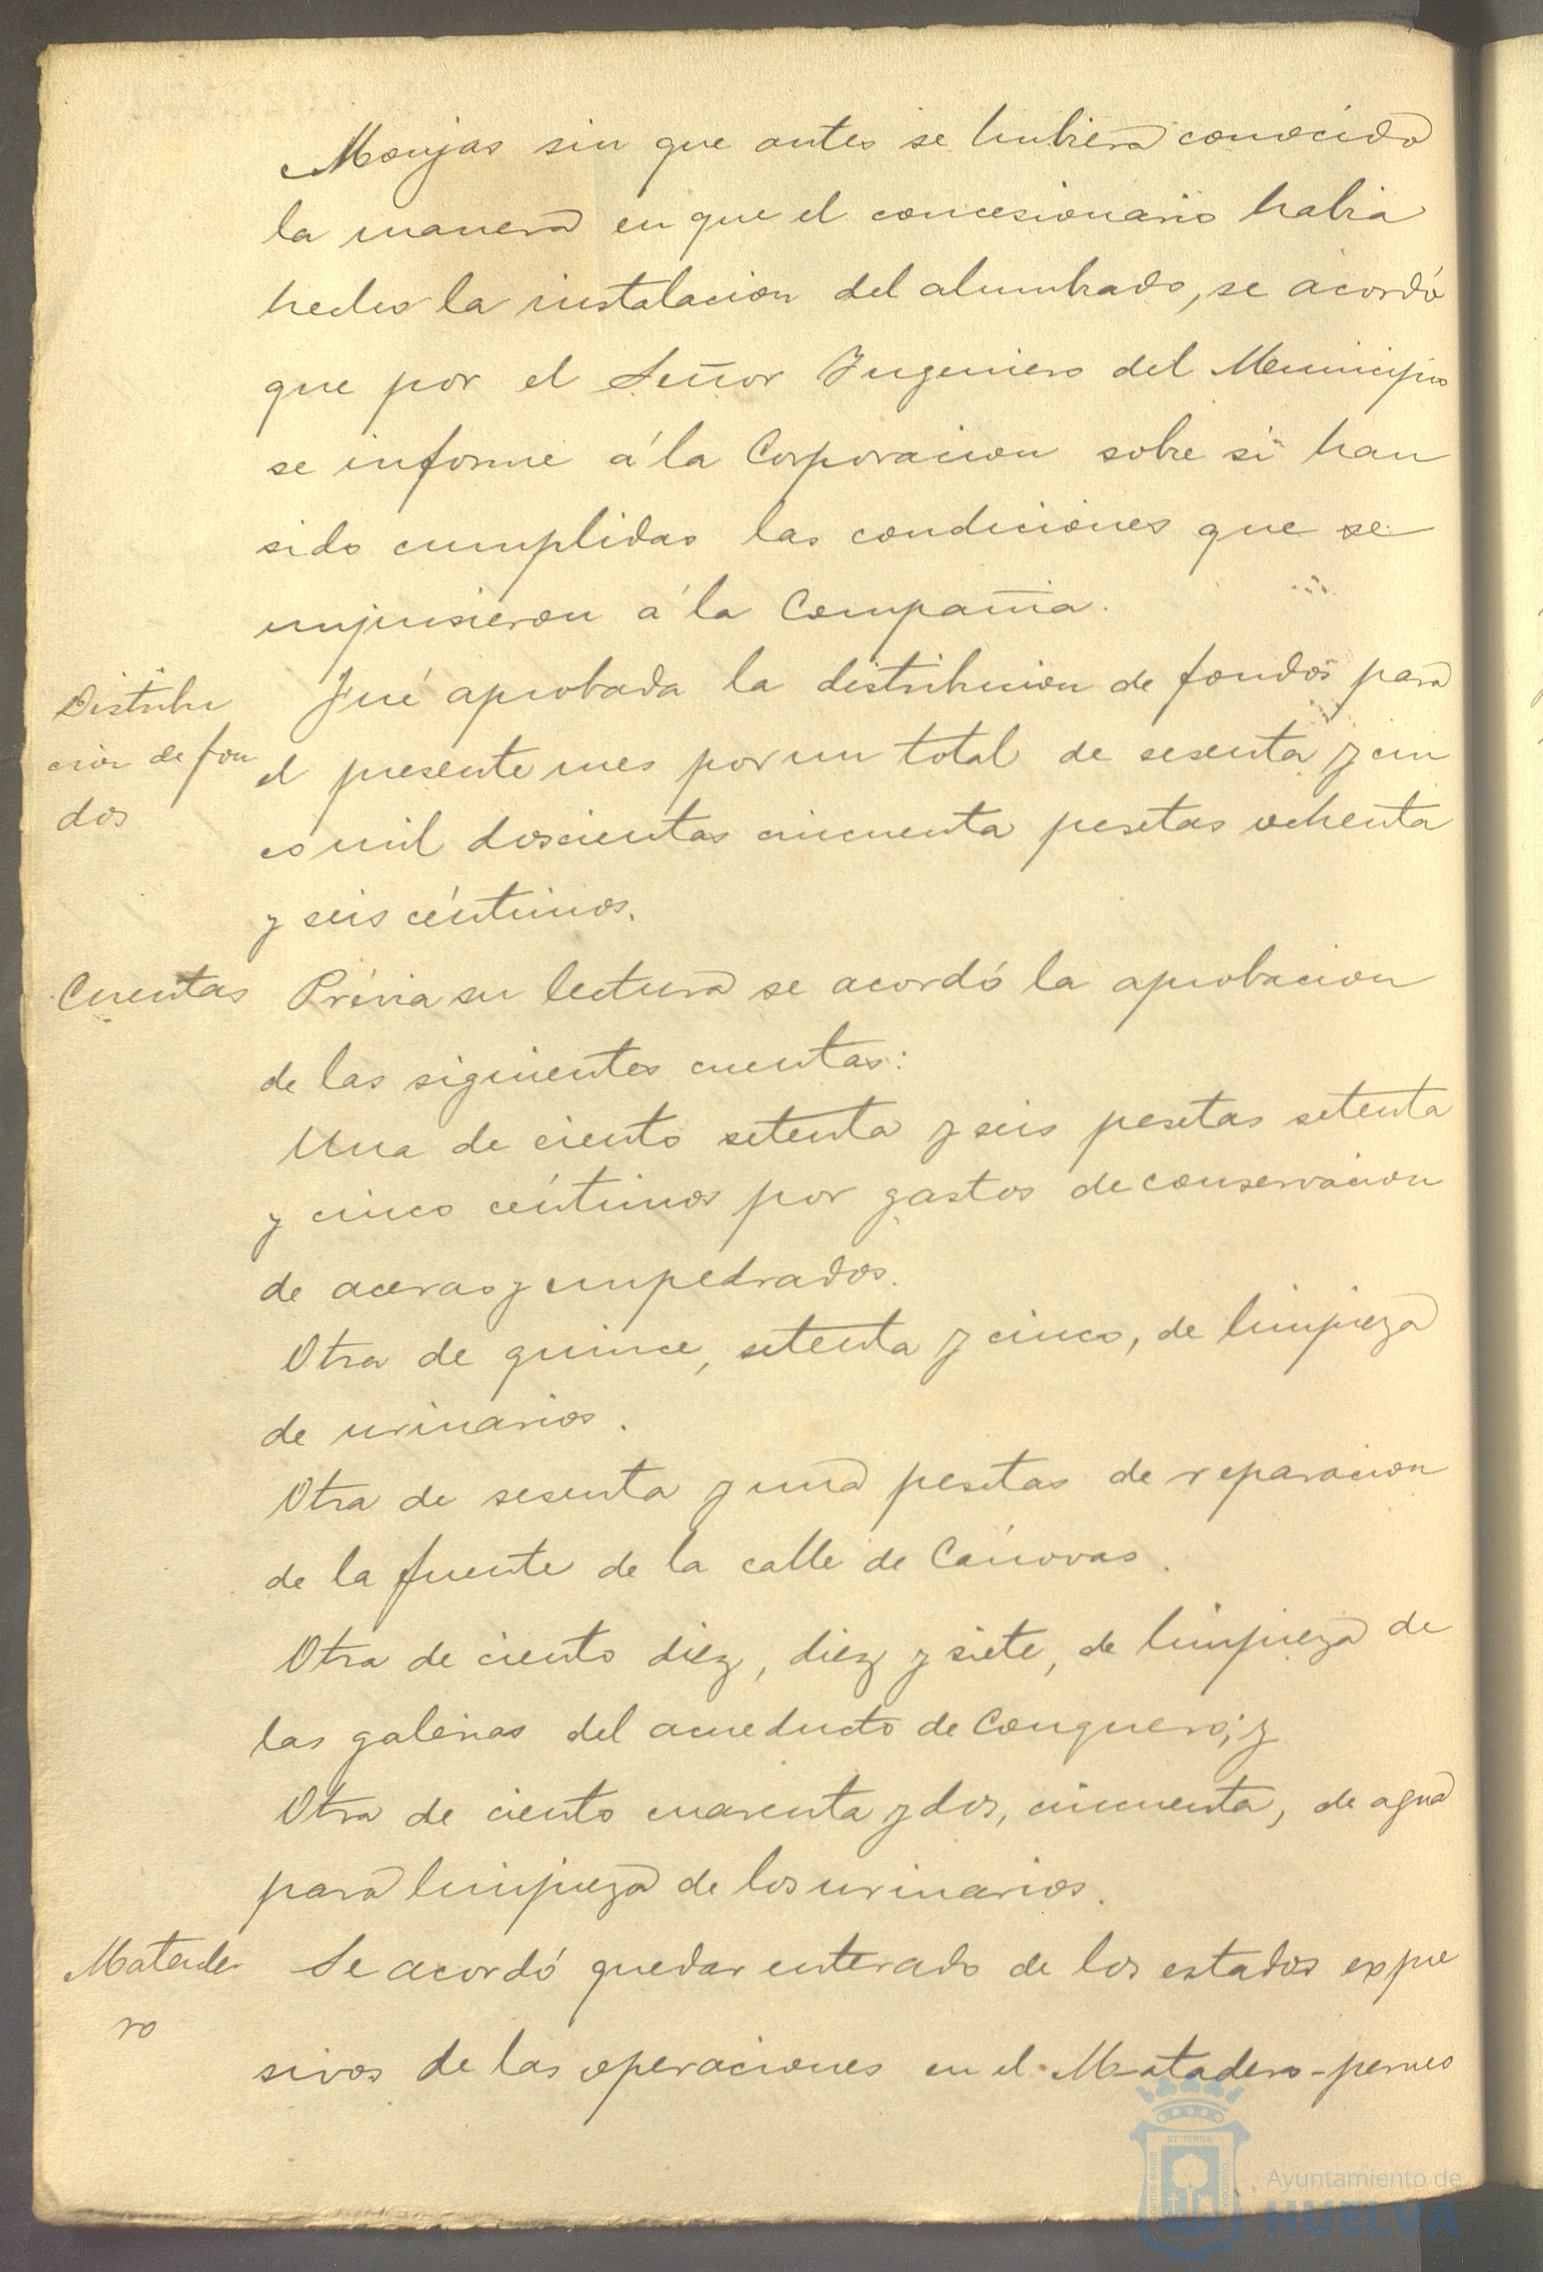 Monjas sin que antes se hubiera conocido
la manera en que el concesionario habia
hecho la instalacion del alumbrado, se acordó
que por el Señor Yngeniero del Municipio
se informe á la Corporacion sobre si han
sido cumplidas las condiciones que se
impusieron á la Compañia.
Distribu
cion de fon
dos
Fué aprobada la distribucion de fondos para
el presente mes por un total de sesenta y cin
co mil doscientas cincuenta pesetas ochenta
y seis céntimos.
Cuentas
Prévia su lectura se acordó la aprobacion
de las siguientes cuentas:
Una de ciento setenta y seis pesetas setenta
y cinco céntimos por gastos de conservacion
de aceras y empedrados.
Otra de quince, setenta y cinco, de limpieza
de urinarios.
Otra de sesenta y una pesetas de reparacion
de la fuente de la calle de Cánovas.
Otra de ciento diez, diez y siete, de limpieza de
las galerias del acueducto de Conquero; y
Otra de ciento cuarenta y dos, cincuenta, de agua
para limpieza de los urinarios.
Matade
ro
Se acordó quedar enterado de los estados expre
sivos de las operaciones en el Matadero-perneo
Ayuntamiento de
HUELVA